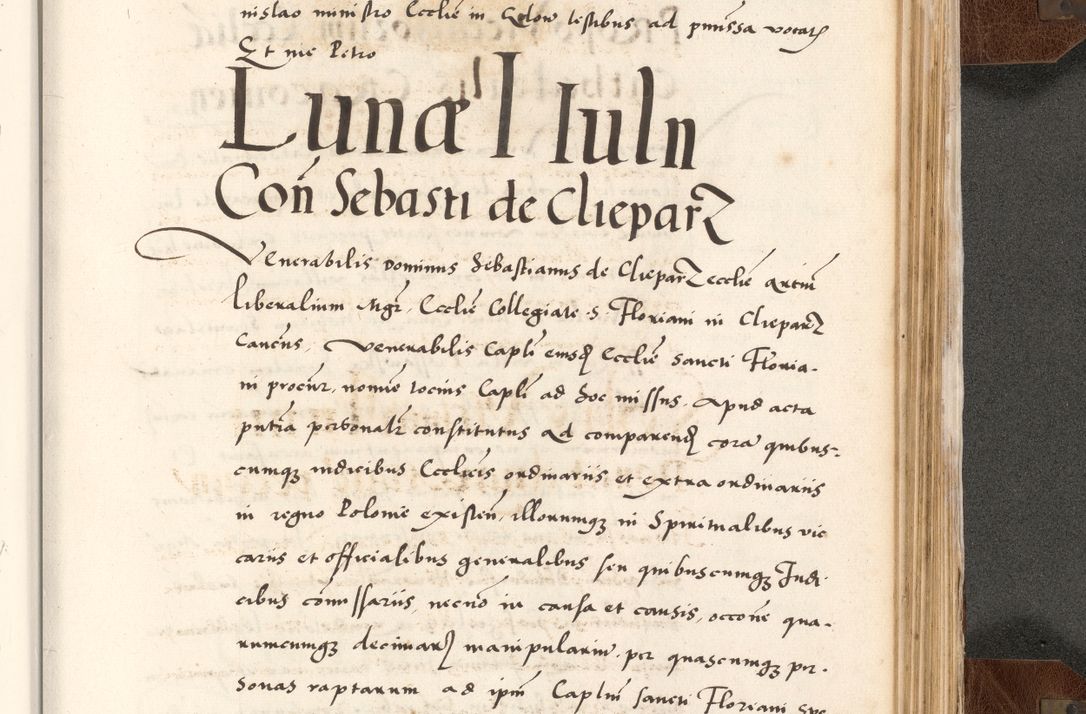 nislao ministro Ecclie in Gelow testibus ad pmissa vocatꝭ
Et me Petro
Lunæ I Iulii
Con Sebasti de Clieparꝝ
Venerabilis Dominus Sebastianus de Clieparꝝ ecclie artiū
liberalium Mgr̄. Ecclie Collegiate S. Floriani in Clieparꝝ
Cancus, Venerabilis Capli eiusdꝫ Ecclie sancti Floria-
ni procur. nomie tocius Capli ad hoc missus. Apud acta
pntia personalr constitutus Ad comparendꝫ corā quibus-
cumqꝫ iudicibus Ecclicis ordinariis et extra ordinariis
in regno Polonie existen. illorumqꝫ in Spiritualibus vic
cariis et officialibus generalibus seu quibuscumqꝫ Judi-
cibus comissariis, necno in causa et causis, occone qua-
rumcumqꝫ decimarꝝ manipulariū per quascumqꝫ per-
sonas raptarum ad ipm Caplm sancti Floriani spe